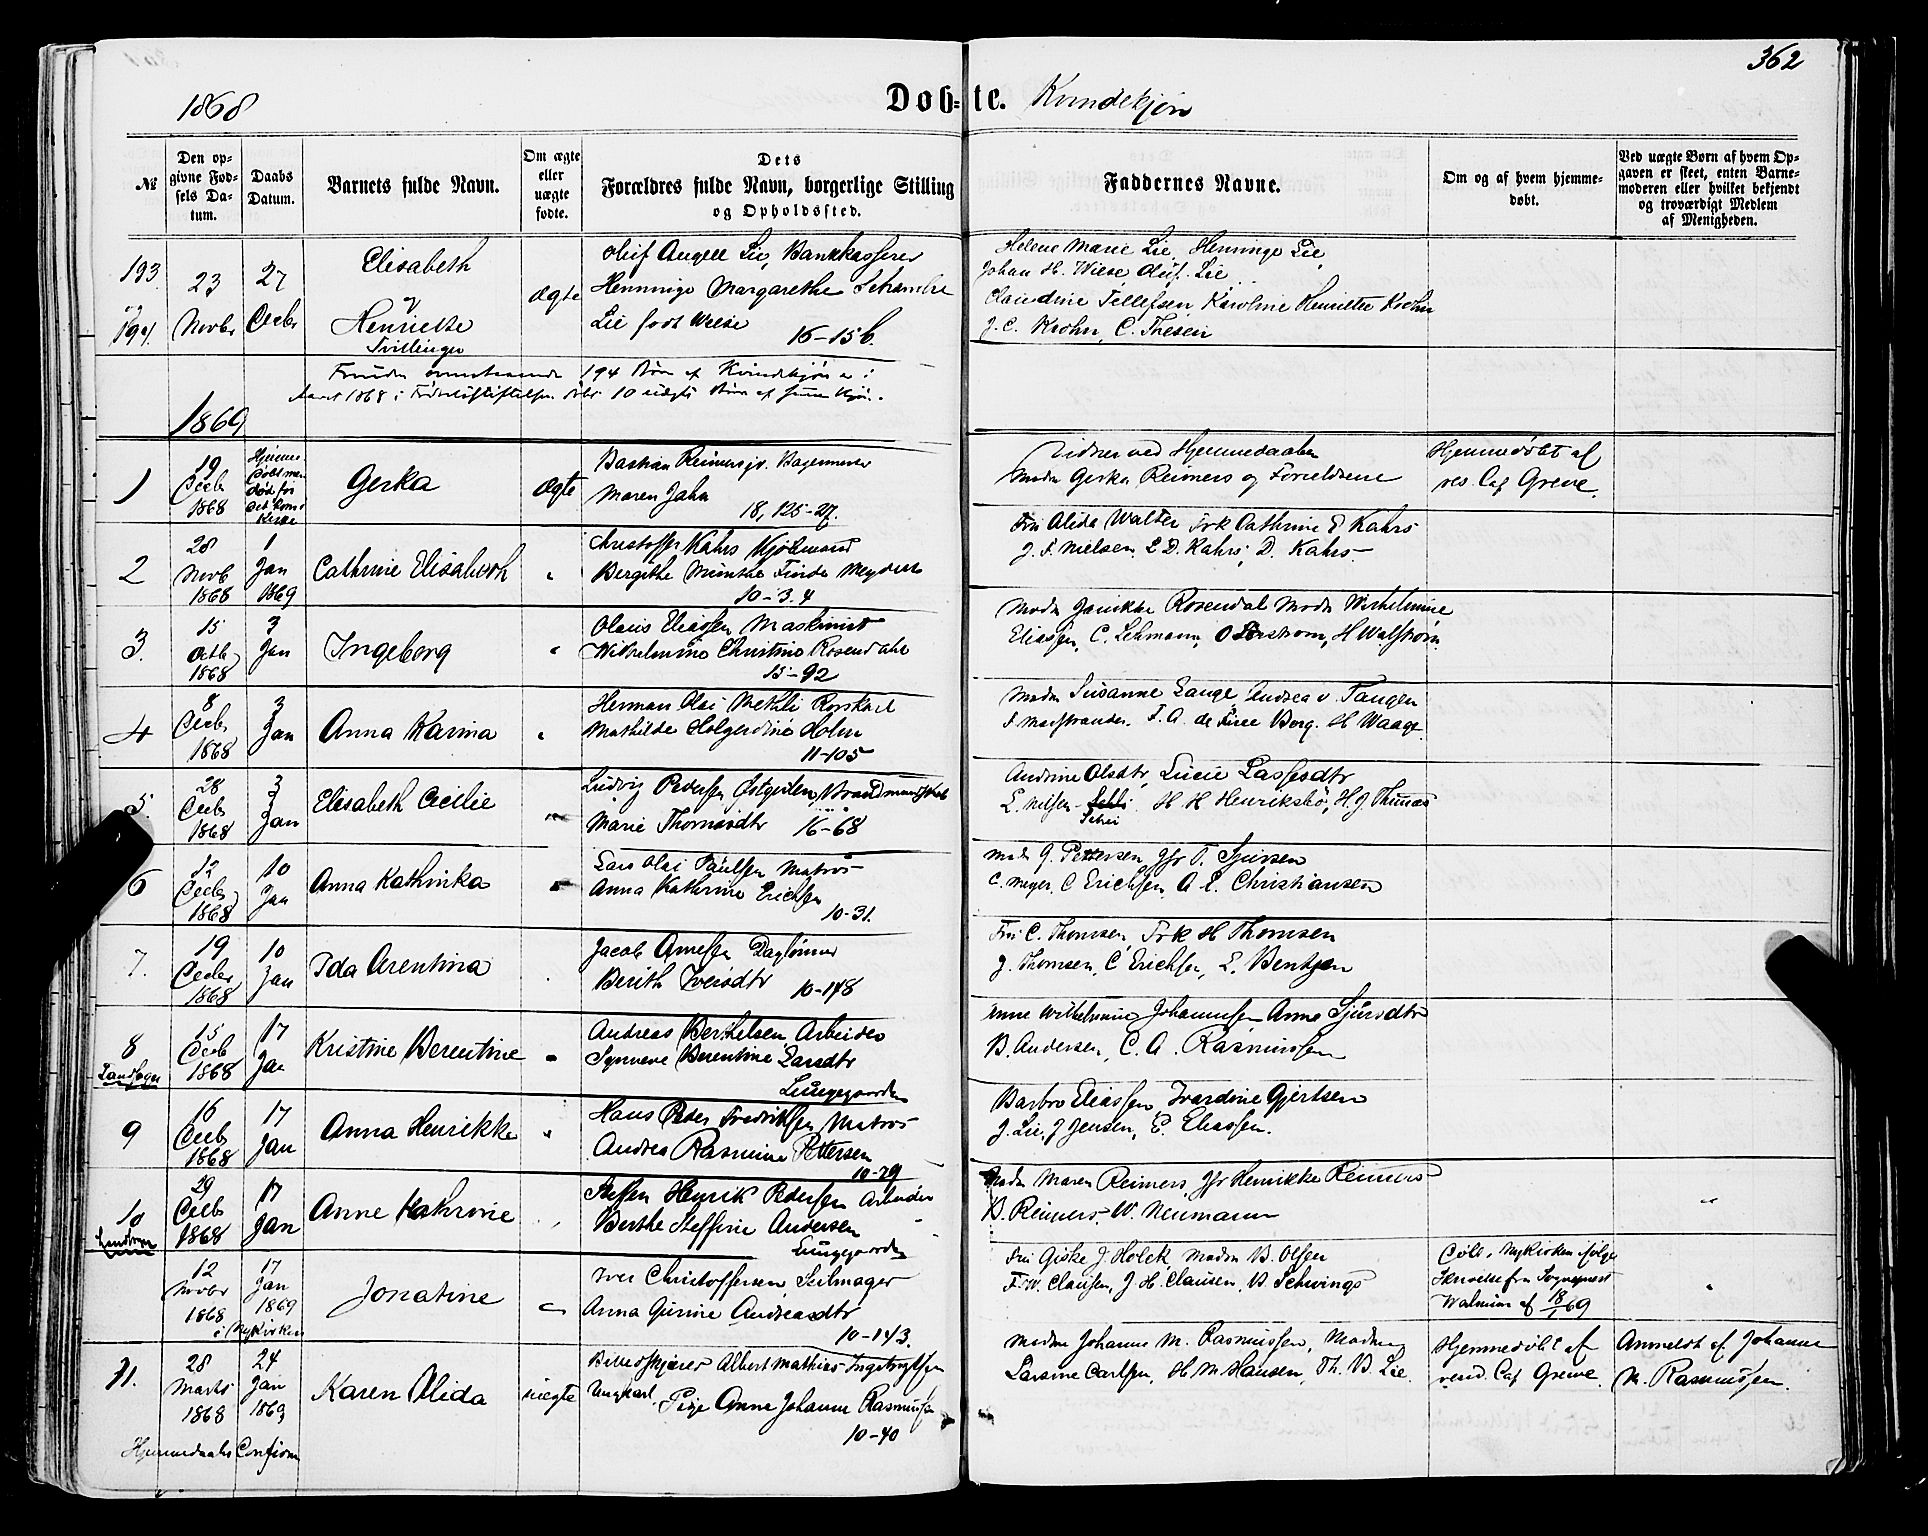 362
1868
Døb-te. Kvindekjøn
№
Den opgivne Fødsels Datum.
Daabs Datum.
Barnets fulde Navn.
Om ægte eller uægte fødte.
Dets
Forældres fulde Navn, borgerlige Stilling
og Opholdssted.
Faddernes Navne.
Om og af hvem hjemmedøbt.
Ved uægte Børn af hvem Opgaven er skeet, enten Barnemoderen eller hvilket bekjendt og troværdigt Medlem af Menigheden.
193.
og
194.
23
Novbr
27
Decbr
Elisabeth
og
Henriette
Tvillinger
ægte
Oluf Angell Lie, Bankkasserer
Henninge Margarethe
Lie født Wiese
16-15b.
Helene Marie Lie, Henninge Lie,
Johan H. Wiese Oluf Lie
Claudine Tellefsen, Karoline Henriette Krohn
J. C. Krohn, C. Thesen
194 Børn af Kvindekjøn er i
Aaret 1868 i Fødselsstiftelsen 10 uægte Børn af
1869
1
19
Decbr
1868
Hjemme-
døbt men
død før
det kom i
Kirke
Gerka
Ægte
Bastian Reimers jr. Bagermester
Maren Jahn
18, 125-27.
Vidner ved Hjemmedaaben
Madm Gerka Reimers og Forældrene
Hjemmedøbt af
res. Cap Greve.
2
28
Novb
1868
1
Jan
1869
Cathrine Elisabeth
"
Christoffer Kahrs Kjøbmand
Bergithe Munthe Finde
10-3.4
Fru Alida Walter Frk Cathrine E Kahrs
J. F. Nielsen. E D. Kahrs, D. Kahrs-
3.
15
Octb
1868
3
Jan
Ingeborg
"
Olaus Eliassen Maskinist
Wilhelmine Christine Rosendahl
15-92
Madm Janikke Rosendal Madm Wilhelmine
Eliassen, C. Lehmann, O H Walstrøm.
4
8
Decbr
1868
3
Jan
Anna Karina
"
Herman Olai
Mathilde Holgerdine Holm
11-105
Madm Susanne Lange, Andrea v. Tangen
F. A. de Fine Borg. H Waage.
5.
28
Decbr
1868
3
Jan
Elisabeth Cecilie
"
Ludvig Pedersen
Marie Thomasdtr 16-68
Andrine Olsdtr, Lucie Lassesdtr
L. Nilsen H. H Henriksbø, H. J
6
12
Decbr
1868
10
Jan
Anna Kathinka
"
Lars Olai Paulsen Matros
Anna Kathrine Erichsen
10-31.
Mad G. Pettersen Jfr T. Sjursen
C. Meyer, C Erichsen, A. E. Christiansen
7.
19
Decbr
1868
10
Jan
Ida Arentina
"
Jacob Arnesen Daglønner
Berith Iversdtr 10-148
Fru C. Thomsen, Frk H Thomsen
J. Thomsen, C Erichsen, L. Bentzen
8
Landsogn
15
Decb
1868
17
Jan
Kristine Berentine
"
Andreas Berthelsen Arbeider
Synneve Berentine Larsdtr
Lungegaarden
Anne Wilhelmine Johannesen Anna Sjursdtr
B. Andersen, C. A. Rasmussen
9
16
Decbr
1868
17
Jan
Anna Henrikke
"
Hans Peder Fredriksen Matros
Andrea Rasmine Pettersen
10-79
Barbro Eliassen, Ivardine Gjertsen
J. Lie, J Jensen, E. Eliassen.
10
Landsogn
29
Decbr
1868
17
Jan
Anne Kathrine
"
Steffen Henrik Pedersen Arbeider
Berthe Steffine Andersen
Lungegaarden
Madm Maren Reimers, Jfr Henrikke Reimers
B. Reimers, W. Neumann
"
12
Novbr
1868
17
Jan
1869
i Nykirken
Jonatine
"
Iver Christoffersen, Seilmager
Anna Gurine Andreasdtr
10-143.
Fru Giske J. Holck, Madm B. Olsen
F. W. Clausen, J. H. Clausen, B. Schwings
Døbt i Nykirken ifølge
Skrivelse fra Sognepræst
Walnum af 18/1 69
"
11.
28
Marts
1868
24
Jan
1869
Hjemmedaabs Confirm
Karen Alida
uægte
Billedskjærer Albert Mathias Ingebrigtsen
Ungkarl, Pige Anne Johanne Rasmussen
10-40
Madm Johanne M. Rasmussen, Madm
Larsine Carlsen, H. M. Hansen, Th. B. Lie.
Hjemmedøbt af
resid. Cap Greve.
Anmeldt af Johanne
M. Rasmussen.